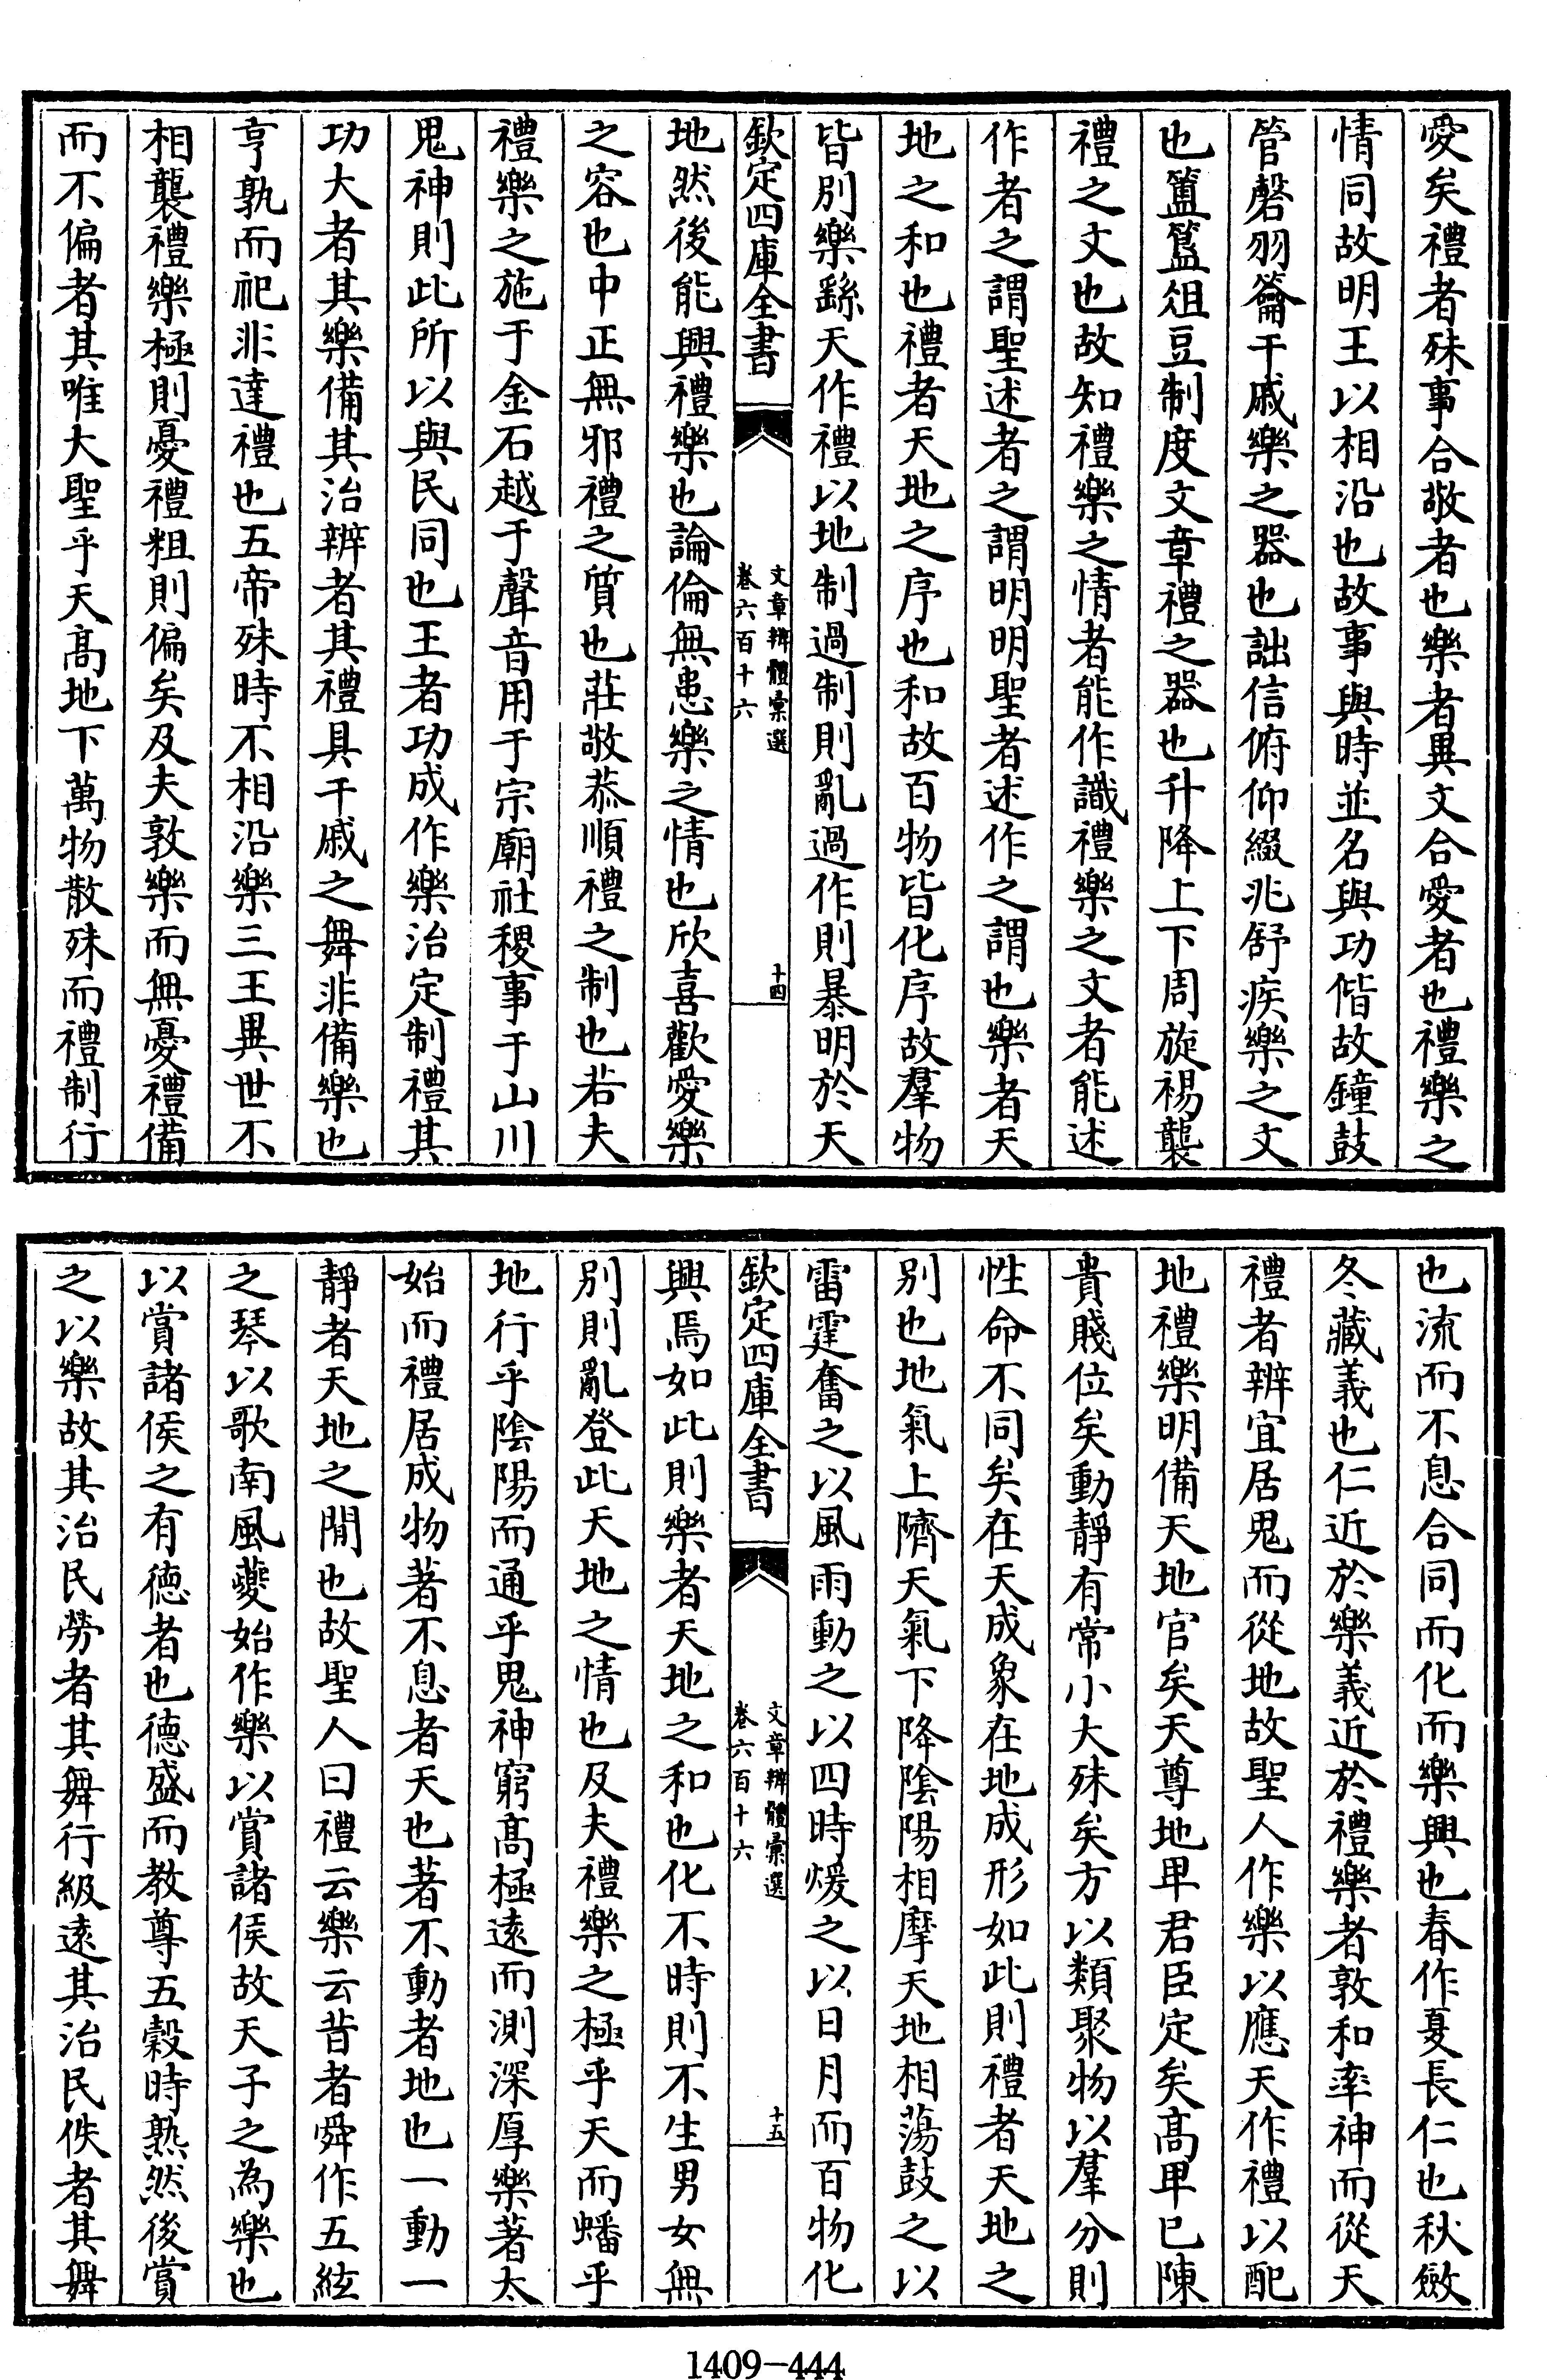 愛矣禮者殊事合敬者也樂者異文合愛者也禮樂之
情同故明王以相沿也故事與時並名與功偕故鐘鼓
管磬羽籥干戚樂之器也詘信俯仰綴兆舒疾樂之文
也簠簋俎豆制度文章禮之器也升降上下周旋裼襲
禮之文也故知禮樂之情者能作識禮樂之文者能述
作者之謂聖述者之謂明明聖者述作之謂也樂者天
地之和也禮者天地之序也和故百物皆化序故羣物
皆別樂繇天作禮以地制過制則亂過作則暴明於天
欽定四庫全書
文章辨體彙選
卷六百十六
十四
地然後能興禮樂也論倫無患樂之情也欣喜歡愛樂
之容也中正無邪禮之質也莊敬恭順禮之制也若夫
禮樂之施于金石越于聲音用于宗廟社稷事于山川
鬼神則此所以與民同也王者功成作樂治定制禮其
功大者其樂備其治辨者其禮具干戚之舞非備樂也
亨孰而祀非達禮也五帝殊時不相沿樂三王異世不
相襲禮樂極則憂禮粗則偏矣及夫敦樂而無憂禮備
而不偏者其唯大聖乎天高地下萬物散殊而禮制行
也流而不息合同而化而樂興也春作夏長仁也秋斂
冬藏義也仁近於樂義近於禮樂者敦和率神而從天
禮者辨宜居鬼而從地故聖人作樂以應天作禮以配
地禮樂明備天地官矣天尊地卑君臣定矣高卑已陳
貴賤位矣動靜有常小大殊矣方以類聚物以羣分則
性命不同矣在天成象在地成形如此則禮者天地之
別也地氣上隮天氣下降陰陽相摩天地相蕩鼓之以
雷霆奮之以風雨動之以四時煖之以日月而百物化
欽定四庫全書
文章辨體彙選
卷六百十六
十五
興焉如此則樂者天地之和也化不時則不生男女無
別則亂登此天地之情也及夫禮樂之極乎天而蟠乎
地行乎陰陽而通乎鬼神窮高極遠而測深厚樂著太
始而禮居成物著不息者天也著不動者地也一動一
靜者天地之閒也故聖人曰禮云樂云昔者舜作五絃
之琴以歌南風夔始作樂以賞諸侯故天子之為樂也
以賞諸侯之有德者也德盛而教尊五穀時熟然後賞
之以樂故其治民勞者其舞行級遠其治民佚者其舞
1409-444